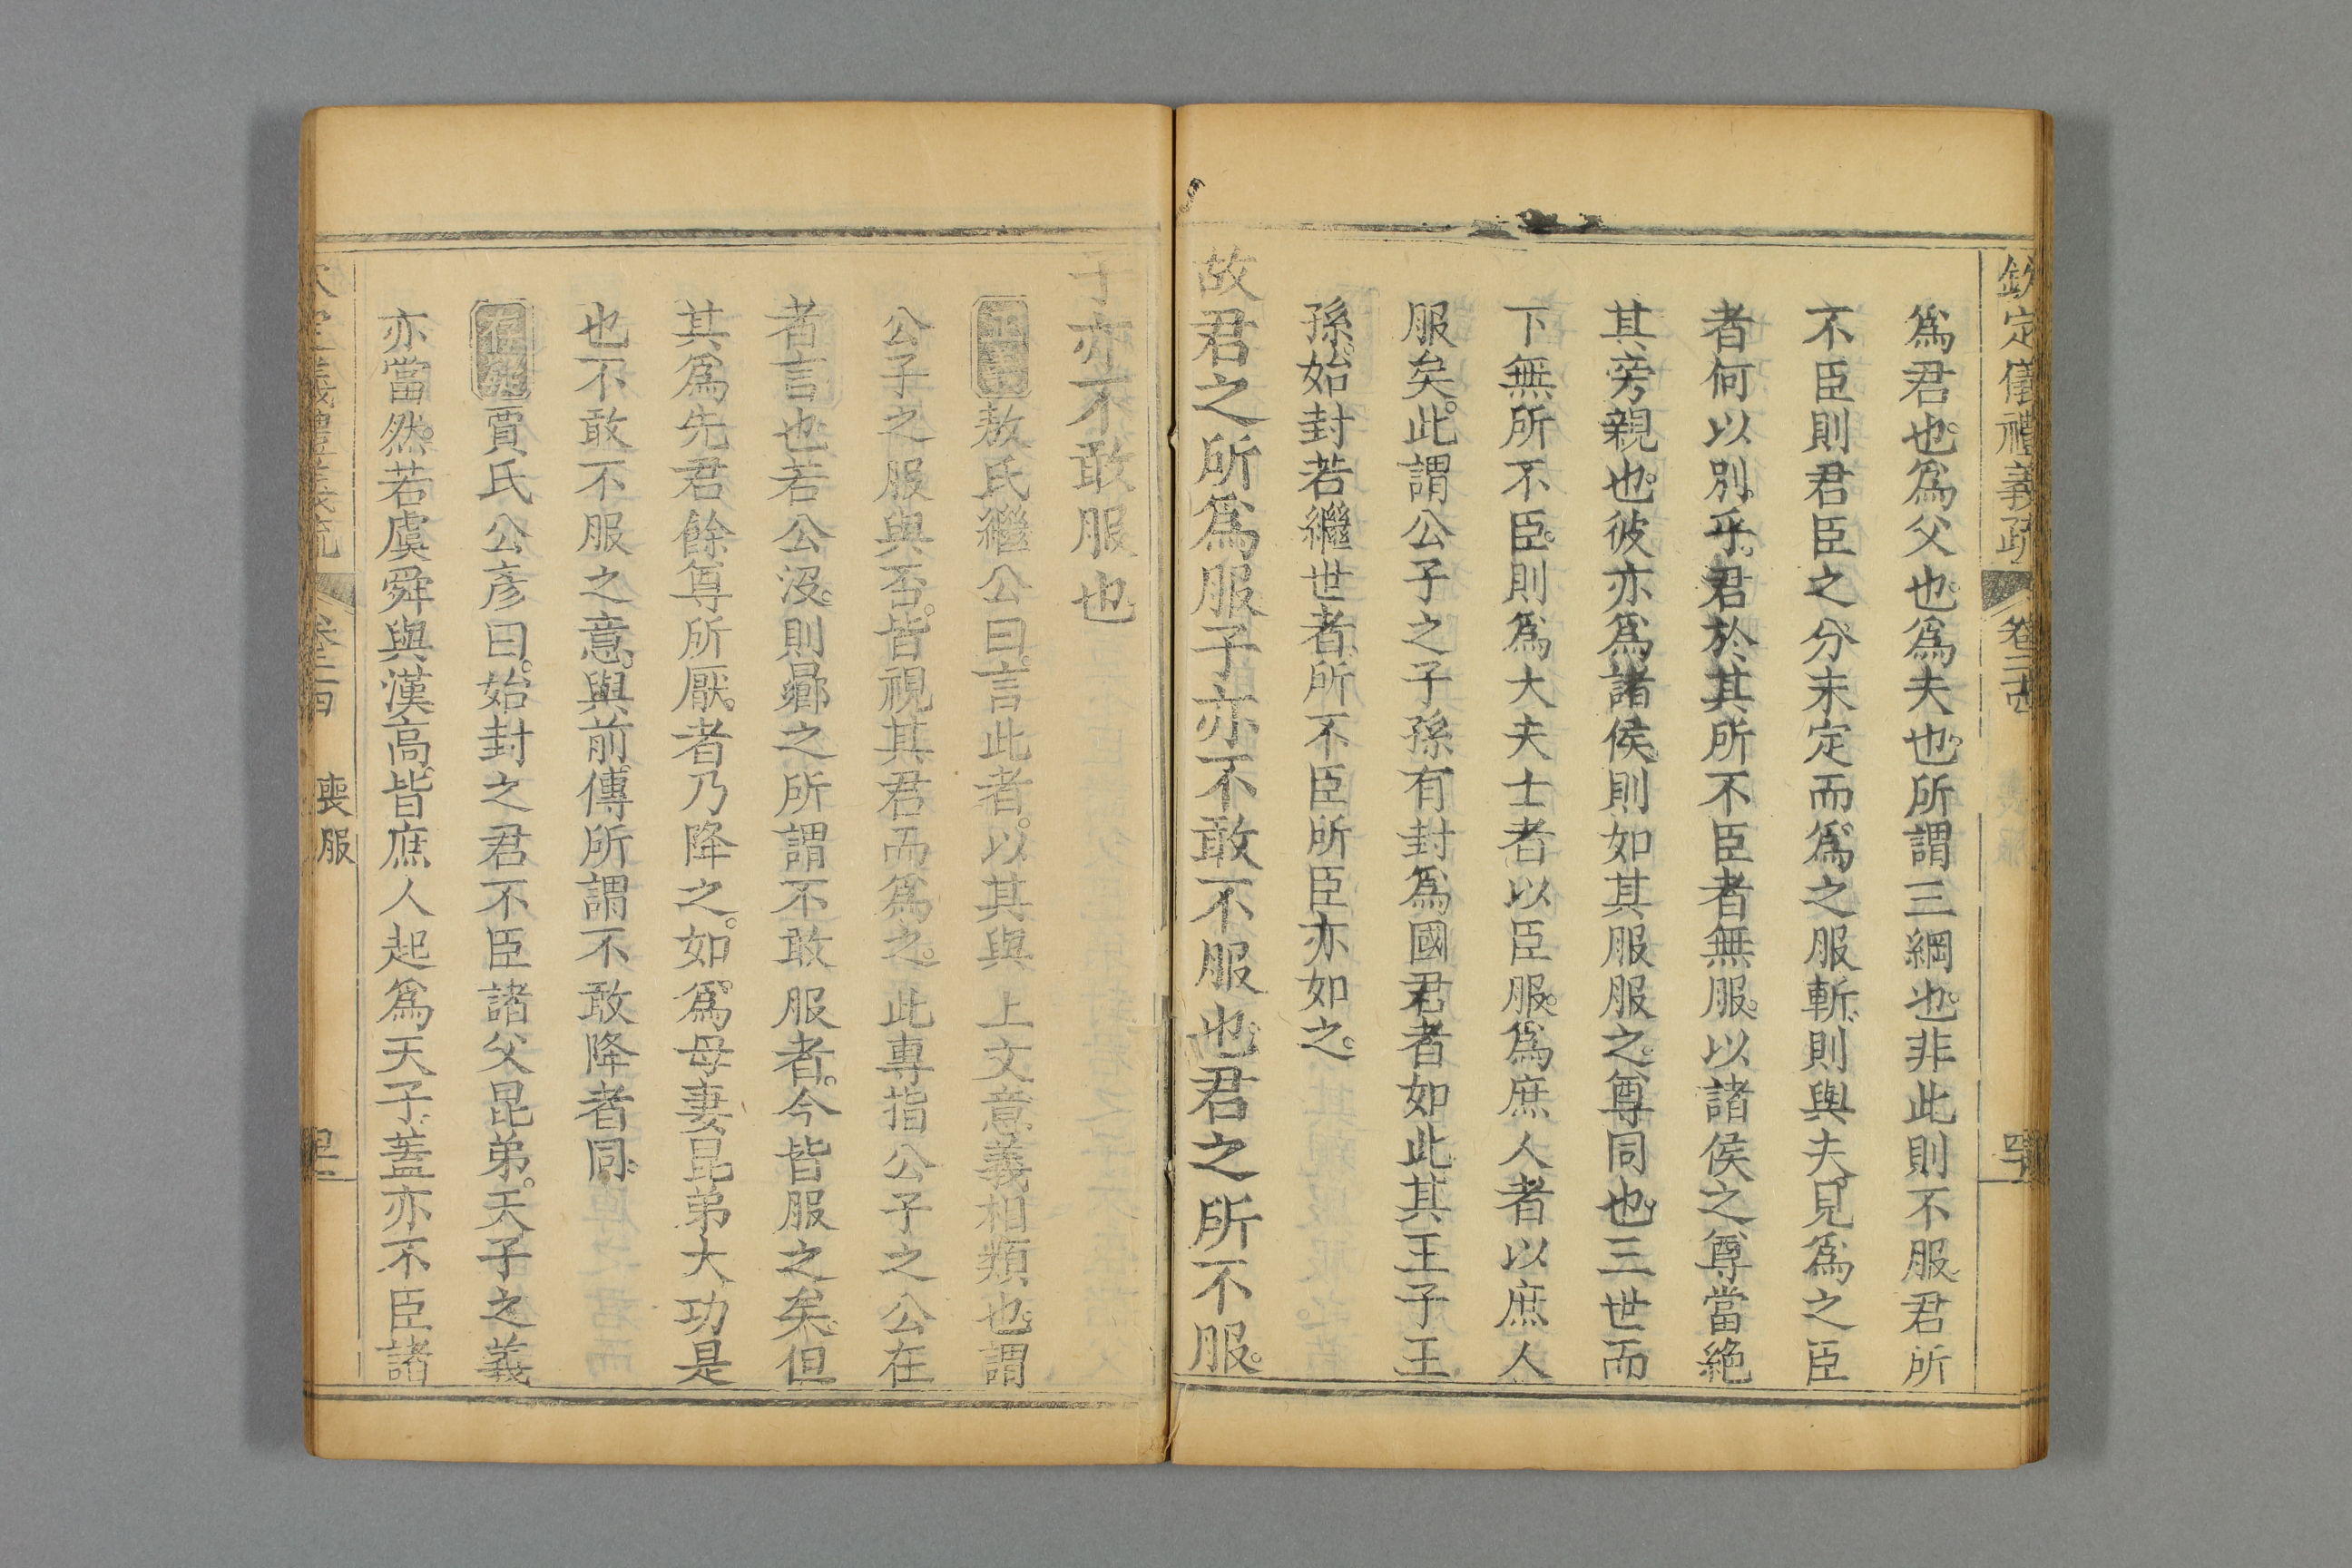 欽定儀禮義疏 卷二十四
爲君也爲父也爲夫也所謂三綱也非此則不服君所
不臣則君臣之分未定而爲之服斬則與夫見爲之臣
者何以別乎君於其所不臣者無服以諸侯之尊當絶
其旁親也彼亦爲諸侯則如其服服之尊同也三世而
下無所不臣則爲大夫士者以臣服爲庶人者以庶人
服矣此謂公子之子孫有封爲國君者如此其王子王
孫始封若繼世者所不臣所臣亦如之
故君之所爲服子亦不敢不服也君之所不服
子亦不敢服也
敖氏繼公曰言此者以其與上文意義相類也謂
公子之服與否皆視其君而爲之此專指公子之公在
者言也若公沒則曏之所謂不敢服者今皆服之矣但
其爲先君餘尊所厭者乃降之如爲母妻昆弟大功是
也不敢不服之意與前傳所謂不敢降者同
賈氏公彥曰始封之君不臣諸父昆弟天子之義
亦當然若虞舜與漢高皆庶人起爲天子蓋亦不臣諸
喪服